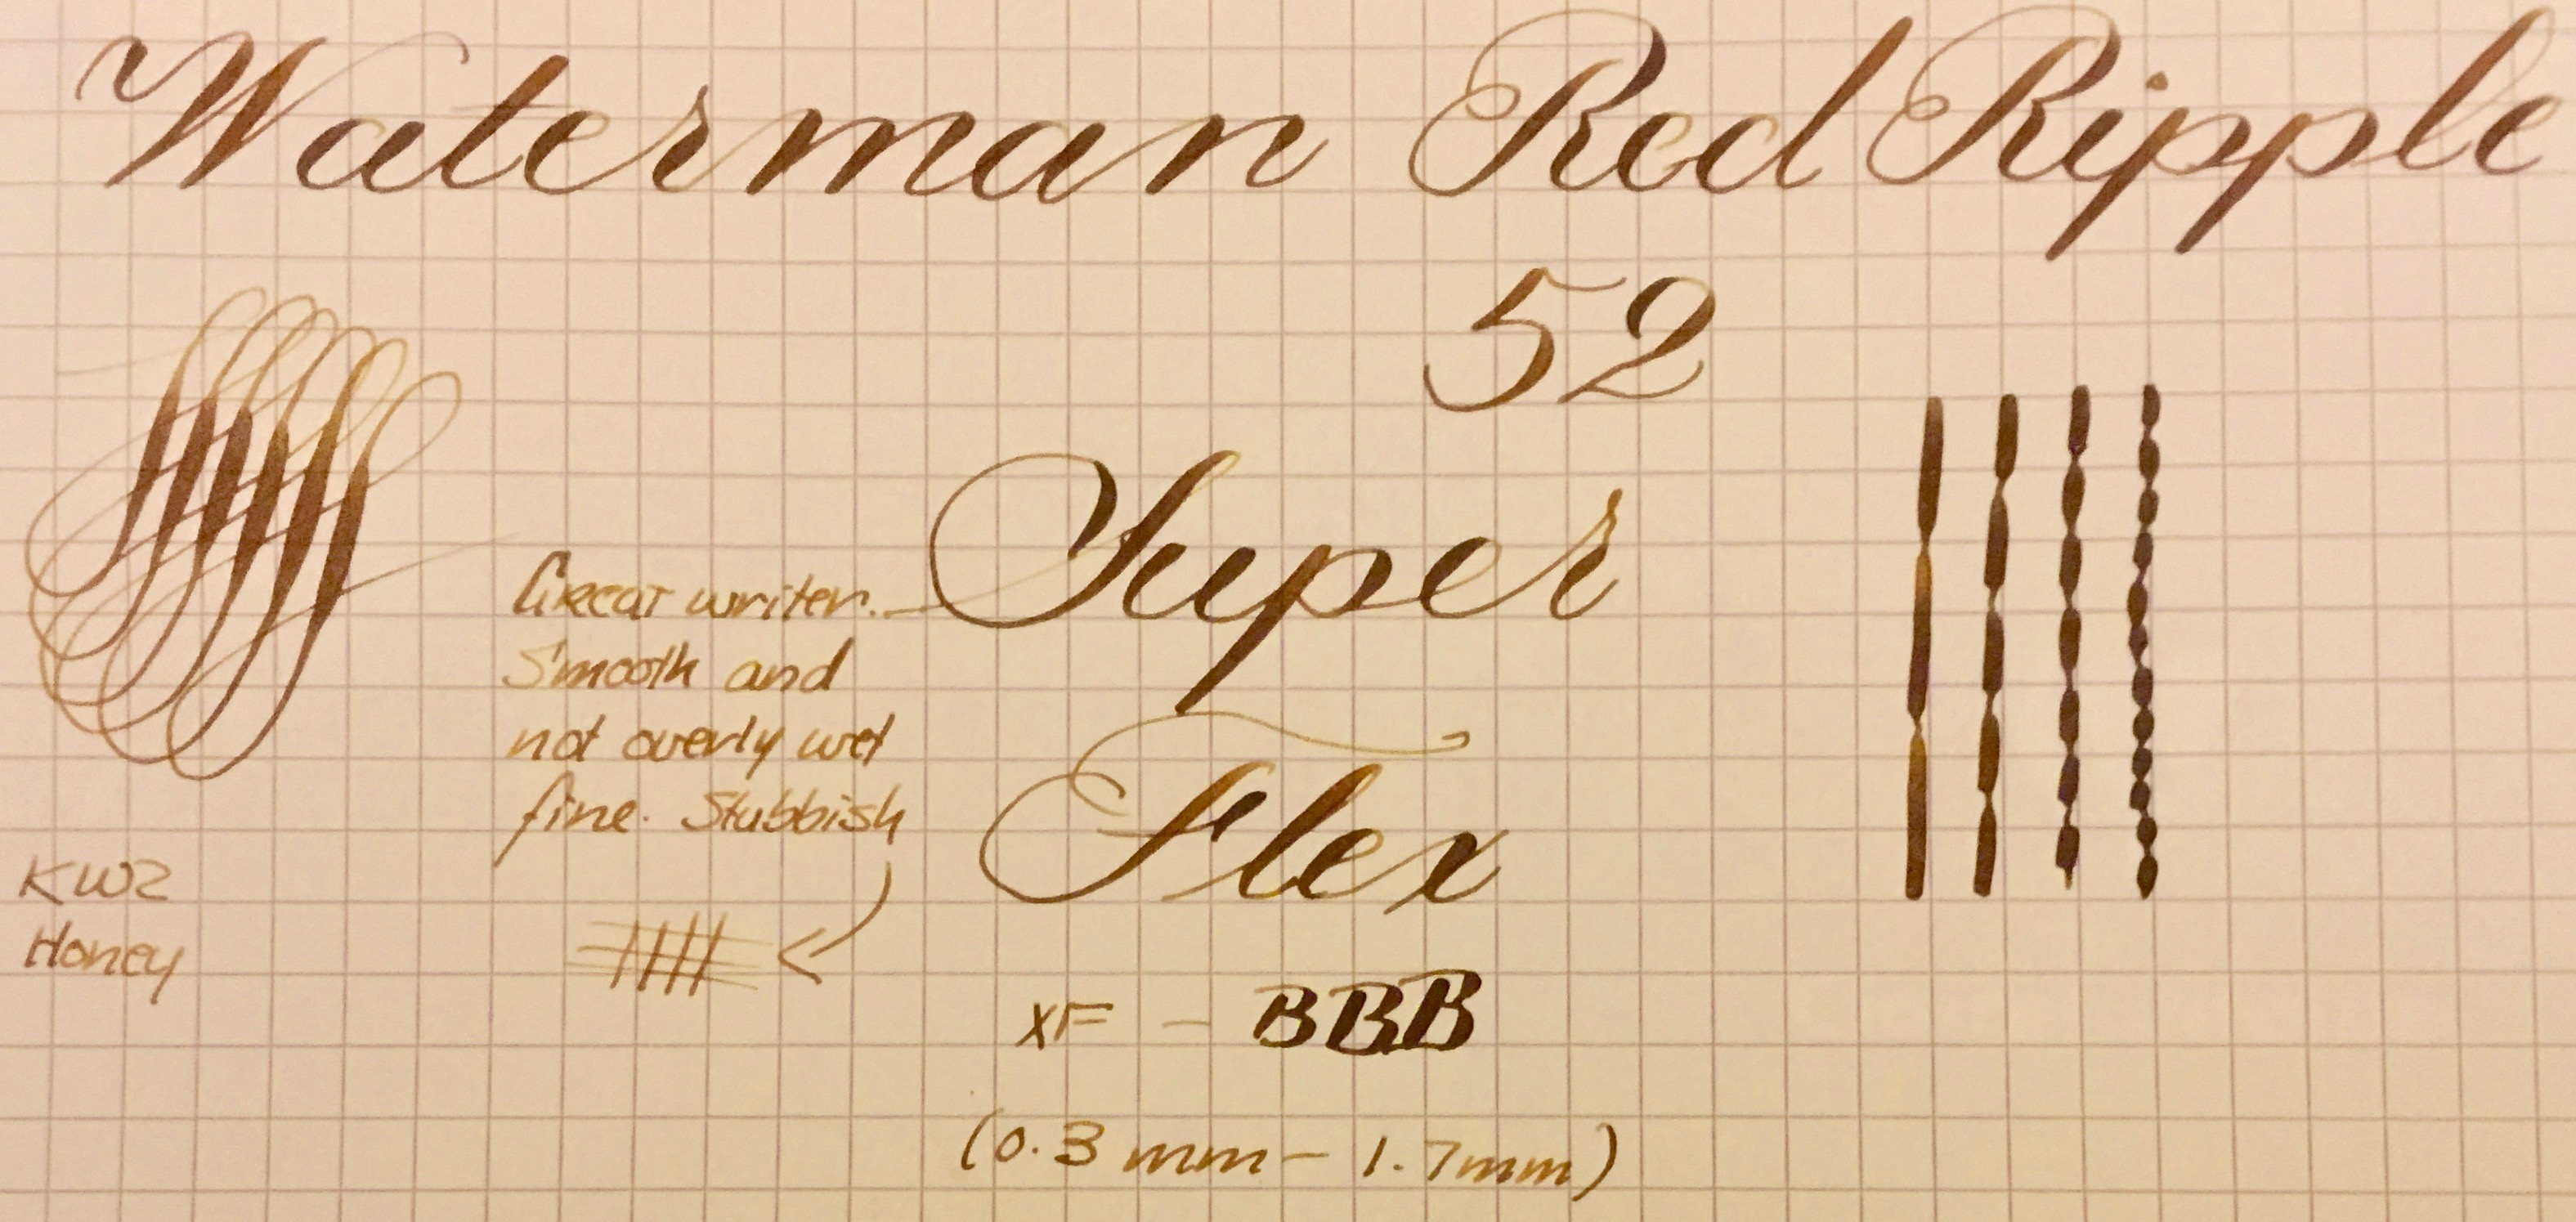 Waterman Red Ripple
52
Super
Flex
Great writer.
Smooth and
not overly wet
fine. Stubbish
KWZ
Honey
XF - BBB
(0.3 mm - 1.7mm)